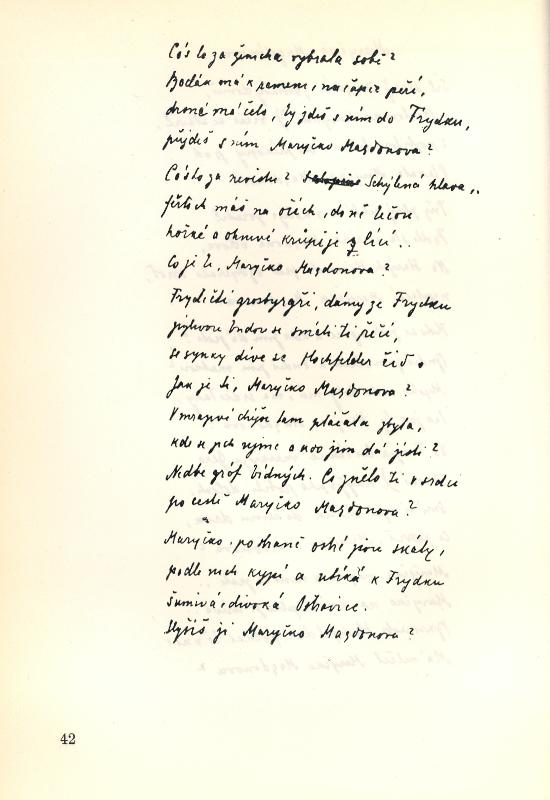 Cós to za ženicha vybrala sobě?
Bodák má k rameni, na čapce peří,
drsné má čelo, ty jdeš s ním do Frydku,
půjdeš s ním Maryčko Magdonova?
Cós to za nevěstu? Schýlená hlava,,
fěrtoch máš na očích, do něj tečou
hořké a ohnivé krůpěje z lící..
Co je ti, Maryčko Magdonova?
Frydečtí grosbyrgři, dámy ze Frydku
jizlivou budou se smáti ti řečí,
se synky dívá se Hochfelder žid.
Jak je ti, Maryčko Magdonova?
V mrazivé chýši tam ptáčata zbyla,
kdo se jich ujme a kdo jim dá jísti?
Nedbá gróf bídných. Co znělo ti v srdci
po cestě Maryčko Magdonova?
Maryčko, po straně ostré jsou skály,
podle nich kypí a utíká k Frydku
šumivá, divoká Ostravice.
Slyšíš ji Maryčko Magdonova?
42